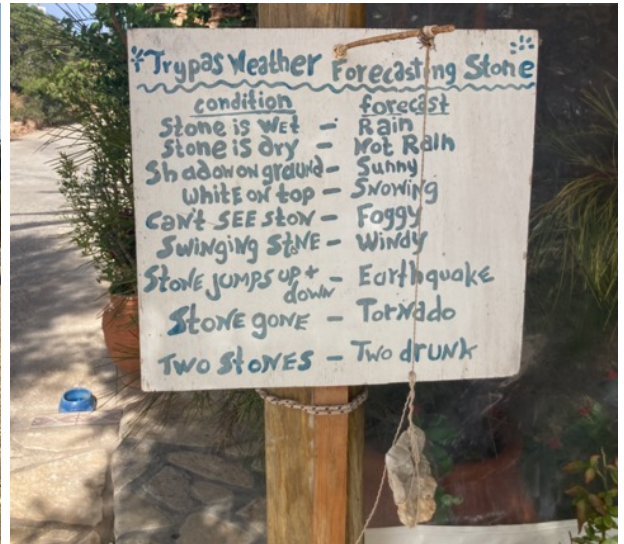 Trypas Weather Forecasting Stone
condition forecast
Stone is WET - Rain
Stone is dry - Not Rain
Shadow on ground - Sunny
White on top - Snowing
can't SEE stow - Foggy
Swinging StNE - Windy
StoNE jUMPS UP + down - Earthquake
StoNE goNE - TorNado
TWO StoNES - Two drunk